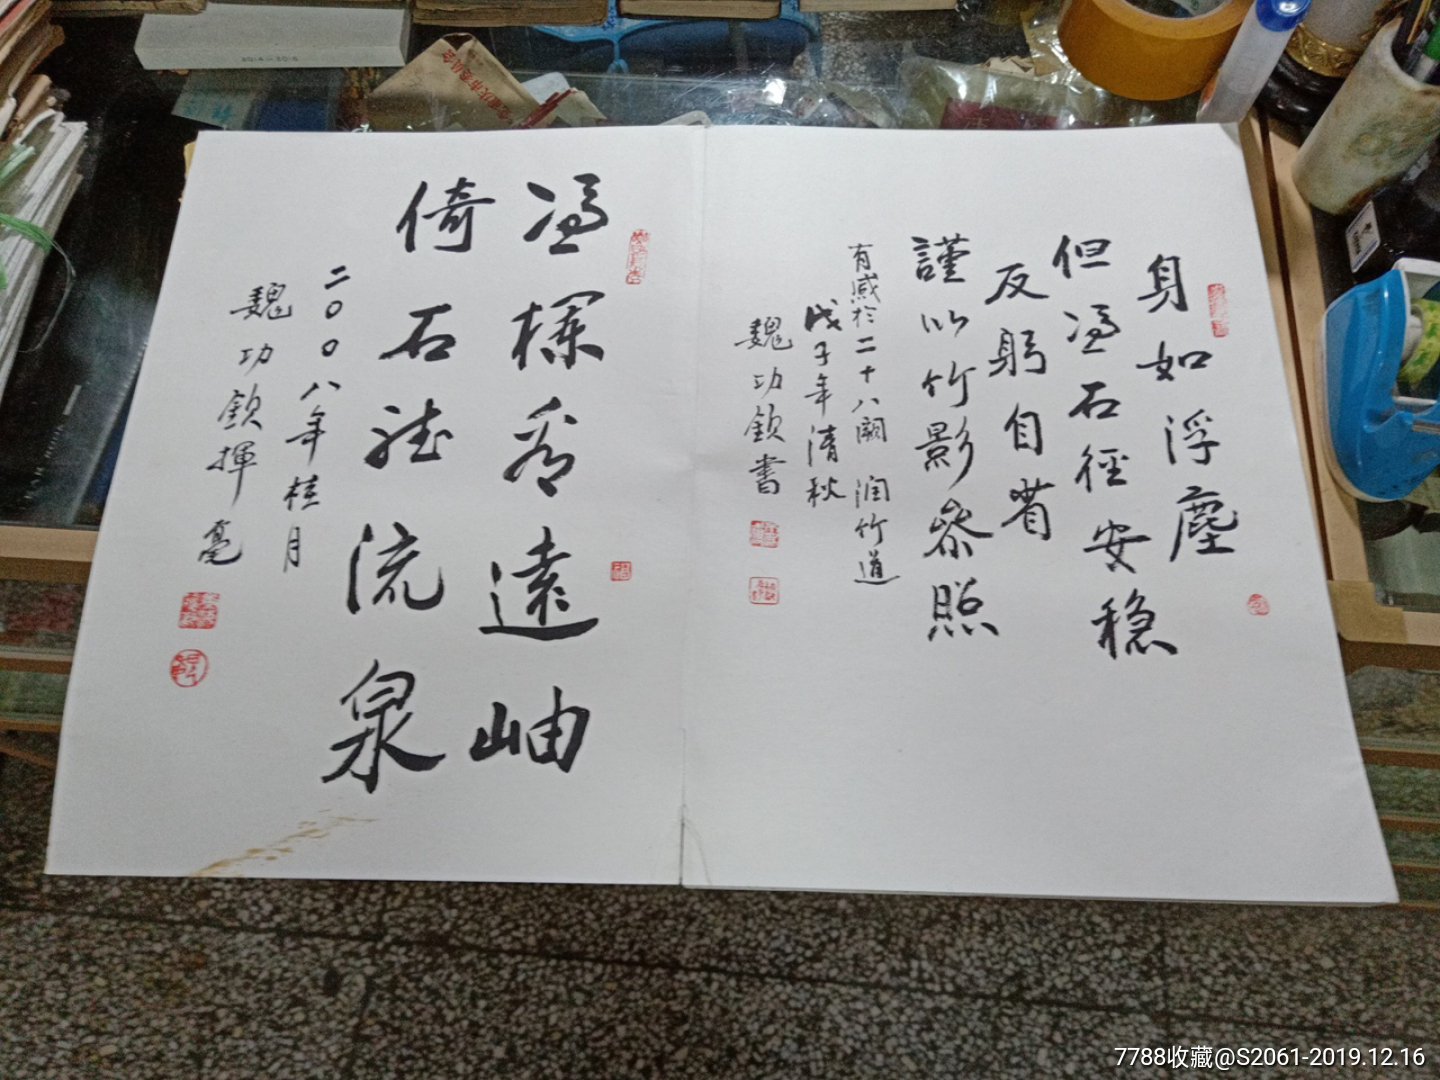 身如浮塵
但憑石徑安稳
反躬自省
謹以竹影參照
有感於二十八闕 润竹道
戊子年清秋
魏功欽書
憑欄看遠岫
倚石聽流泉
二〇〇八年桂月
魏功欽揮毫
7788收藏@S2061-2019.12.16